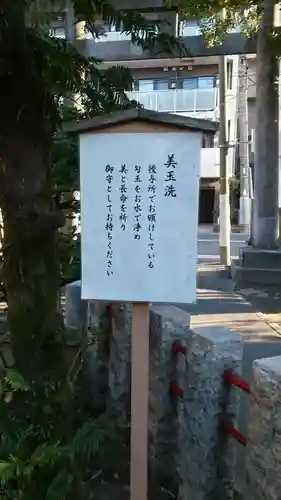 美玉洗
授与所でお頒けしている
勾玉をお水で浄め
美と長命を祈り
御守としてお持ちください